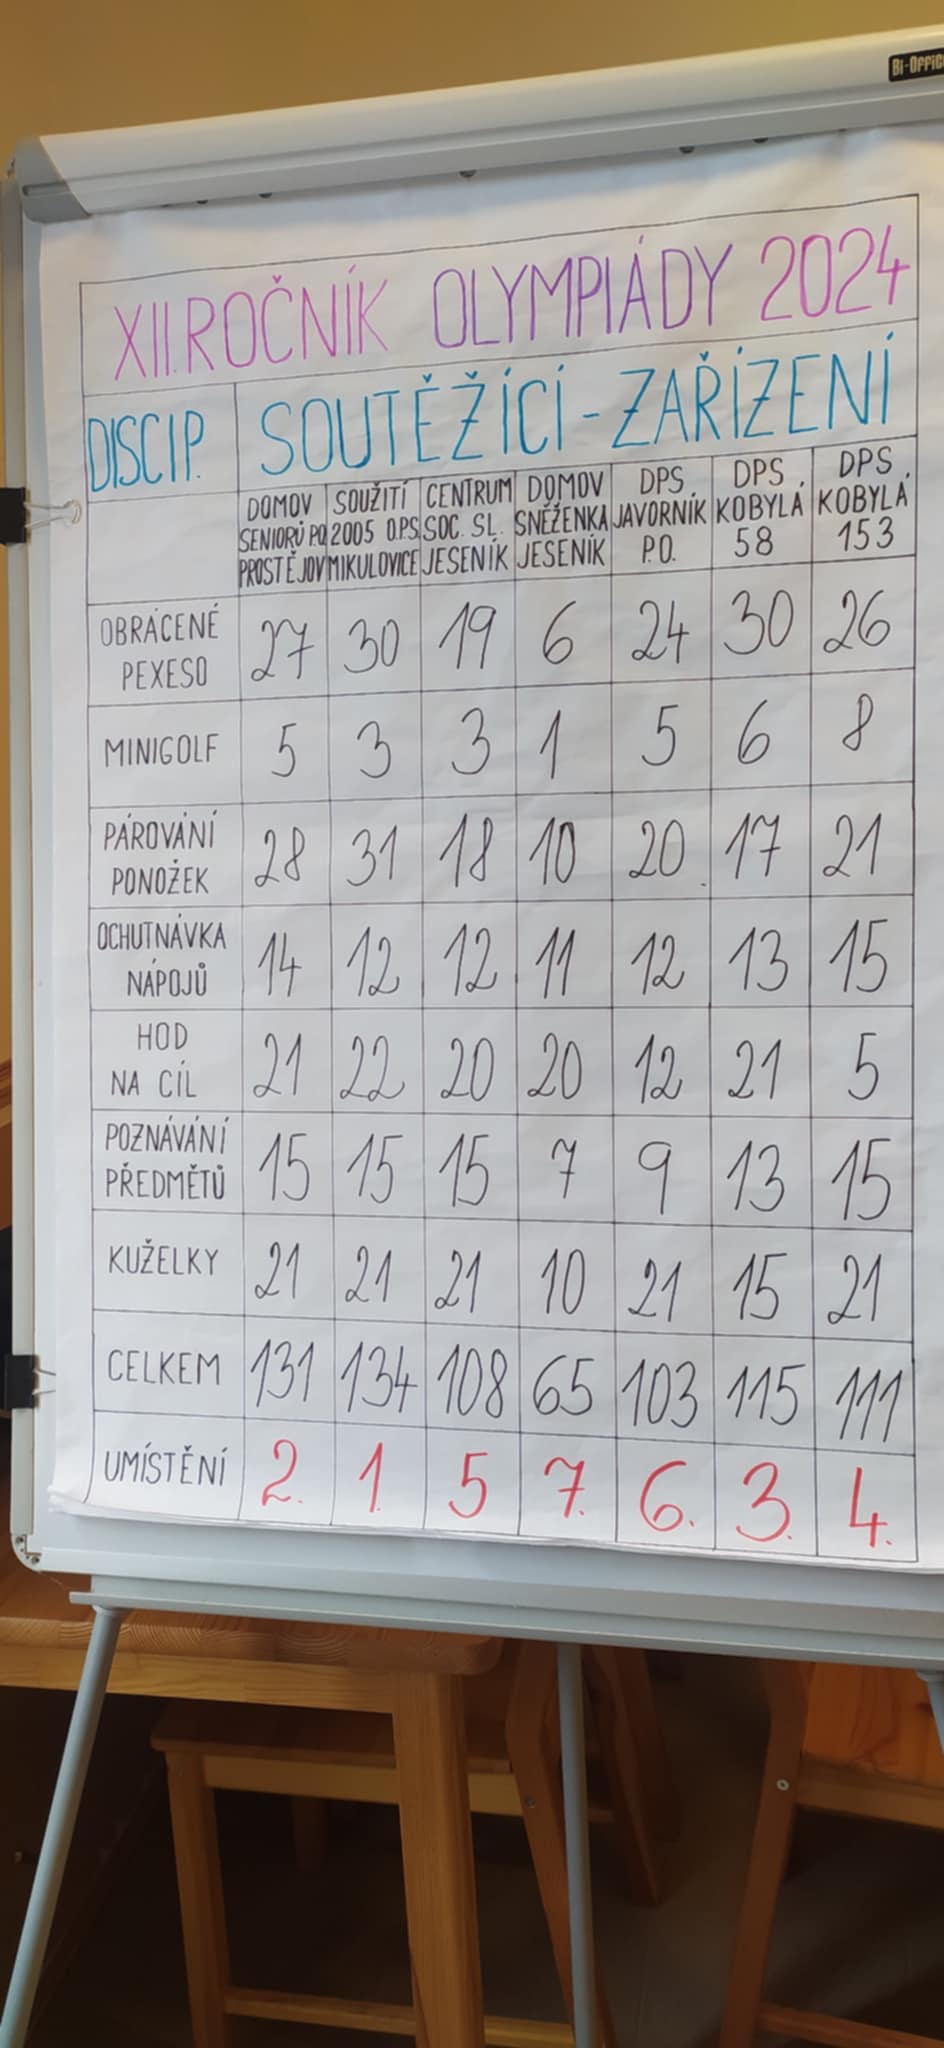 Bi-Office
XII.ROČNÍK OLYMPIÁDY 2024
DISCIP. SOUTĚŽÍCÍ-ZAŘÍZENÍ
DOMOV SENIORŮ PO PROSTĚJOV
SOUŽITÍ 2005 O.P.S. MIKULOVICE
CENTRUM SOC. SL. JESENÍK
DOMOV SNĚŽENKA JESENÍK
DPS JAVORNÍK P.O.
DPS KOBYLÁ 58
DPS KOBYLÁ 153
OBRÁCENÉ PEXESO 27 30 19 6 24 30 26
MINIGOLF 5 3 3 1 5 6 8
PÁROVÁNÍ PONOŽEK 28 31 18 10 20 17 21
OCHUTNÁVKA NÁPOJŮ 14 12 12 11 12 13 15
HOD NA CÍL 21 22 20 20 12 21 5
POZNÁVÁNÍ PŘEDMĚTŮ 15 15 15 7 9 13 15
KUŽELKY 21 21 21 10 21 15 21
CELKEM 131 134 108 65 103 115 111
UMÍSTĚNÍ 2. 1. 5 7. 6. 3. 4.